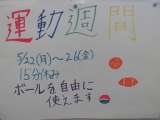 運動週間
5/22(月)〜26(金)
15分休み
ボールを自由に
使えます